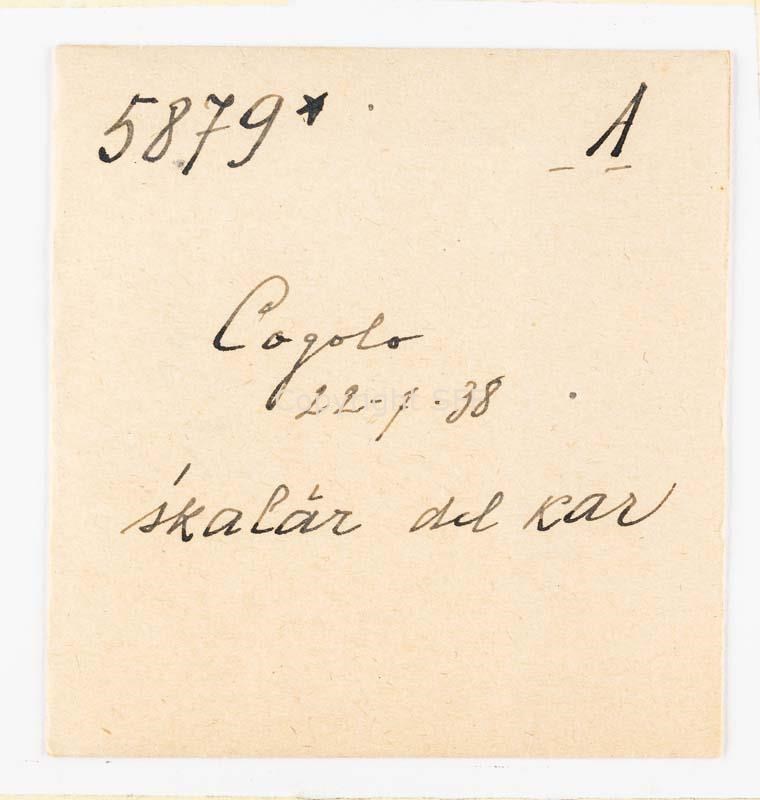 5879* A
Cogolo
22-1-38
śkalár del kar